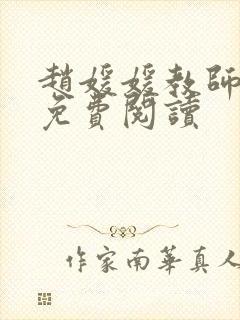 趙媛媛教師
免費閱讀
作家南華真人